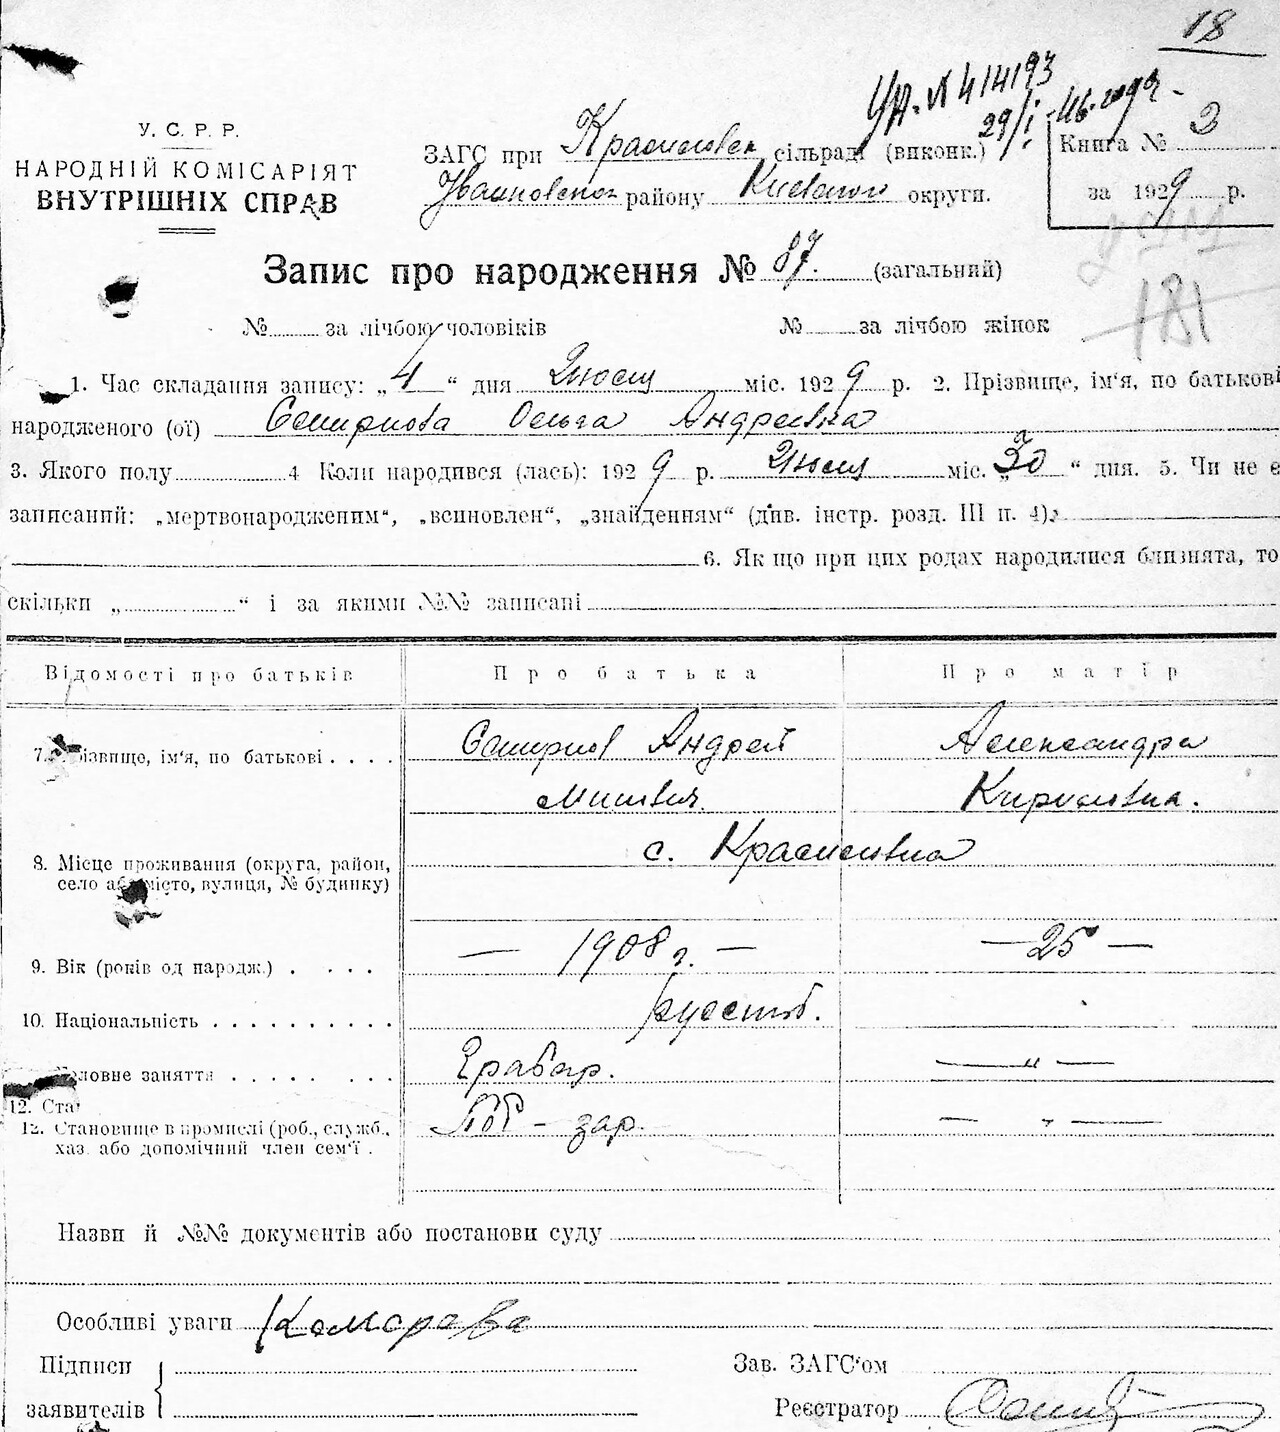 18
У. С. Р. Р.
НАРОДНІЙ КОМІСАРІЯТ
ВНУТРІШНІХ СПРАВ
№ 414193
29/I
ЗАГС при сільраді (виконк.)
району округи.
Книга № 2
за 1929 р.
Запис про народження № 87. (загальний)
181
№ за лічбою чоловіків № за лічбою жінок
1. Час складання запису: „4“ дня Июля міс. 1929 р. 2. Прізвище, ім‘я, по батькові
народженого (ої) Смирнова Ольга Андреевна
3. Якого полу 4 Коли народився (лась): 1929 р. Июля міс. „ “ дня. 5. Чи не є
записаний: „мертвонародженим“, „всиновлен“, „знайденням“ (див. інстр. розд. III п. 4).
6. Як що при цих родах народилися близнята, то
скільки „ “ і за якими №№ записані
Відомості про батьків Про батька Про матір
7. Прізвище, ім‘я, по батькові Смирнов Андрей Александра
Кириловна.
8. Місце проживання (округа, район, с.
село або місто, вулиця, № будинку)
9. Вік (років од народж.) — 1908 г. — — 25 —
10. Національність
Головне заняття Грабар. — „ —
12. Ста
12. Становище в промислі (роб., служб., зар. — „ —
хаз. або допомічний член сем‘ї .
Назви й №№ документів або постанови суду
Особливі уваги Комарова
Підписи Зав. ЗАГС‘ом
заявителів Реєстратор